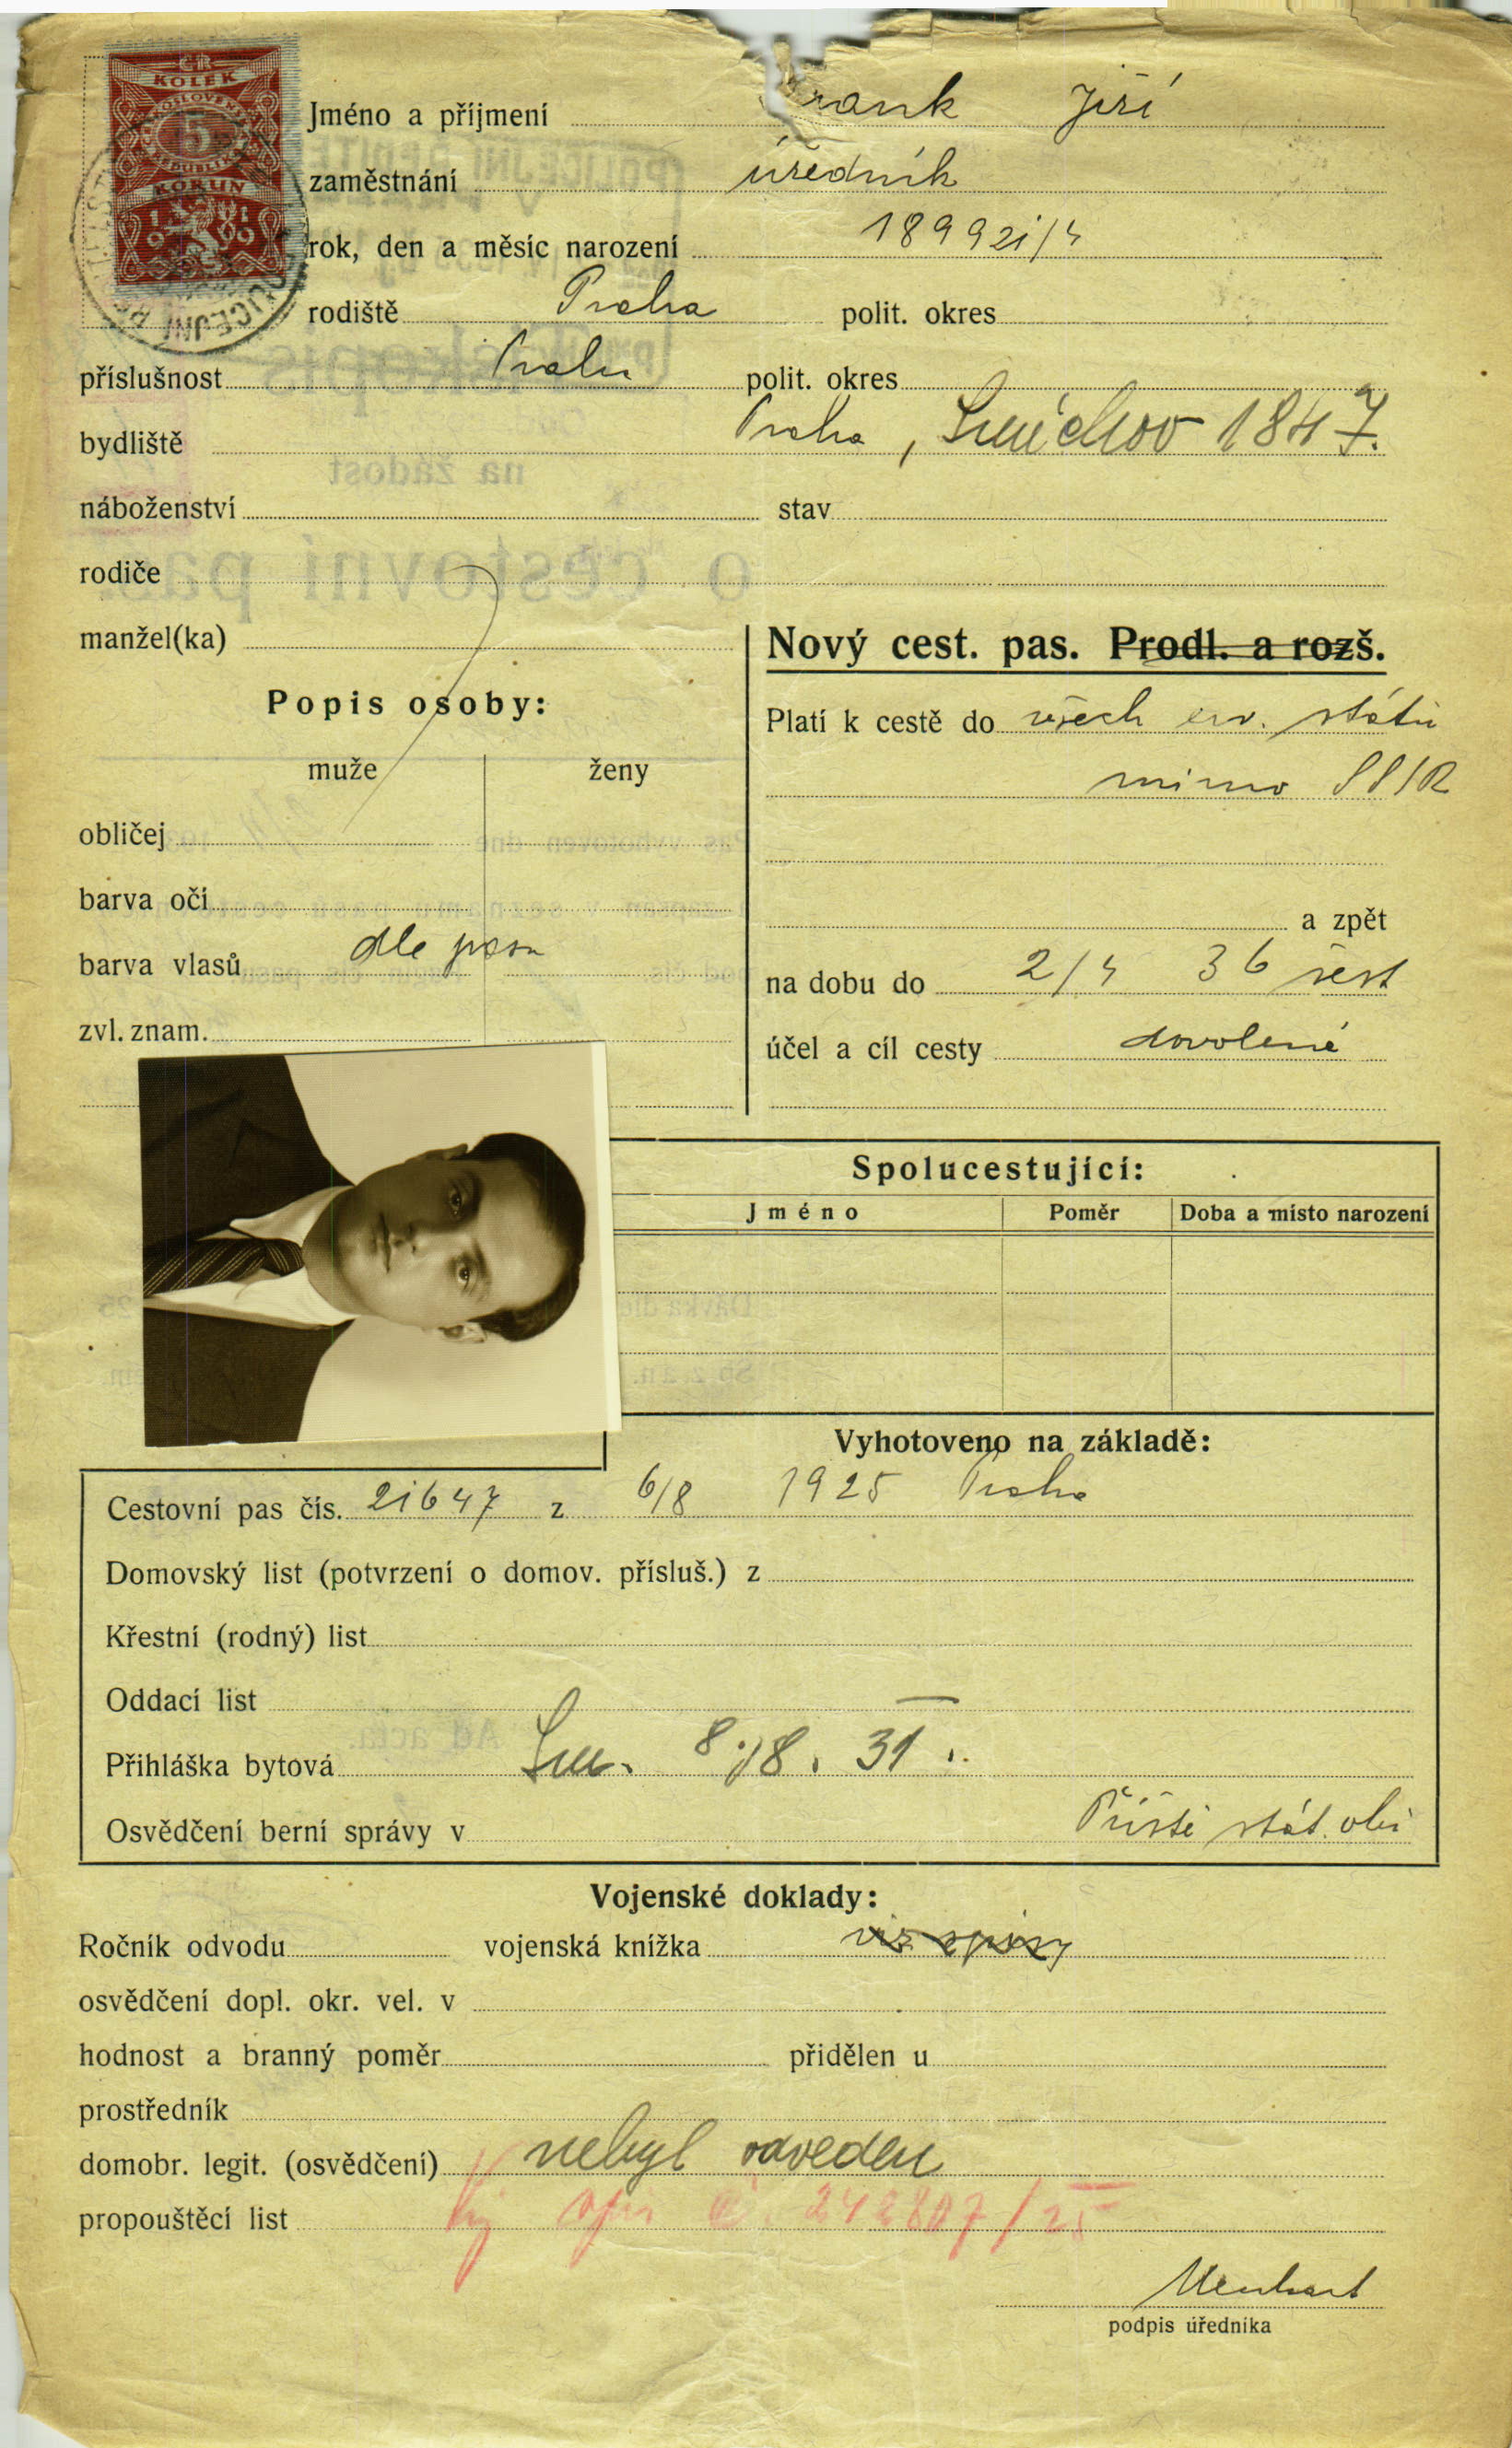 ČR
KOLEK
ČESKOSLOVENSKÁ
5
REPUBLIKA
KORUN
1919
POLICEJNÍ
Jméno a příjmení rank Jiří
zaměstnání úředník
rok, den a měsíc narození 1899 21/4
rodiště Praha polit. okres
příslušnost Praha polit. okres
bydliště Praha, Smíchov 1847.
náboženství stav
rodiče
manžel(ka)
Nový cest. pas. Prodl. a rozš.
Popis osoby:
muže ženy
obličej
barva očí
barva vlasů dle pasu
zvl. znam.
Platí k cestě do všech evr. států
mimo SSSR
a zpět
na dobu do 2/4 36 šest
účel a cíl cesty dovolená
Spolucestující:
Jméno Poměr Doba a místo narození
Vyhotoveno na základě:
Cestovní pas čís. 21647 z 6/8 1925 Praha
Domovský list (potvrzení o domov. přísluš.) z
Křestní (rodný) list
Oddací list
Přihláška bytová Sm. 8./8. 31.
Osvědčení berní správy v stát. obč
Vojenské doklady:
Ročník odvodu vojenská knížka viz spisy
osvědčení dopl. okr. vel. v
hodnost a branný poměr přidělen u
prostředník
domobr. legit. (osvědčení) nebyl odveden
propouštěcí list spis č. 242807/25
Menhart
podpis úředníka